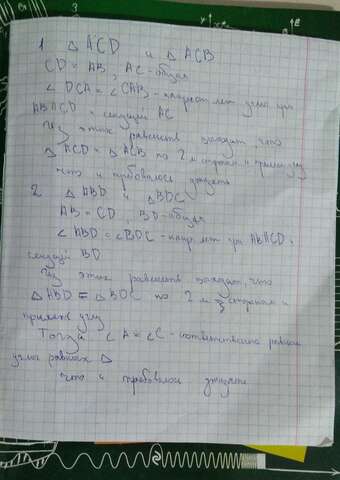 1 △ ACD и △ ACB
CD = AB, AC - общая
∠ DCA = ∠ CAB - накрест лет углы при
AB||CD и секущей AC
Из этих равенств следует что
△ ACD = △ ACB по 2 м сторонам и прилеж углу
что и требовалось доказать
2 △ ABD и △ BDC
AB = CD, BD - общая
∠ ABD = ∠ BDC - накр лет при AB||CD и
секущей BD
Из этих равенств следует, что
△ ABD = △ BDC по 2 м сторонам и
прилеж углу
Тогда ∠ A = ∠ C - соответственно равные
углы равных △
что и требовалось доказать